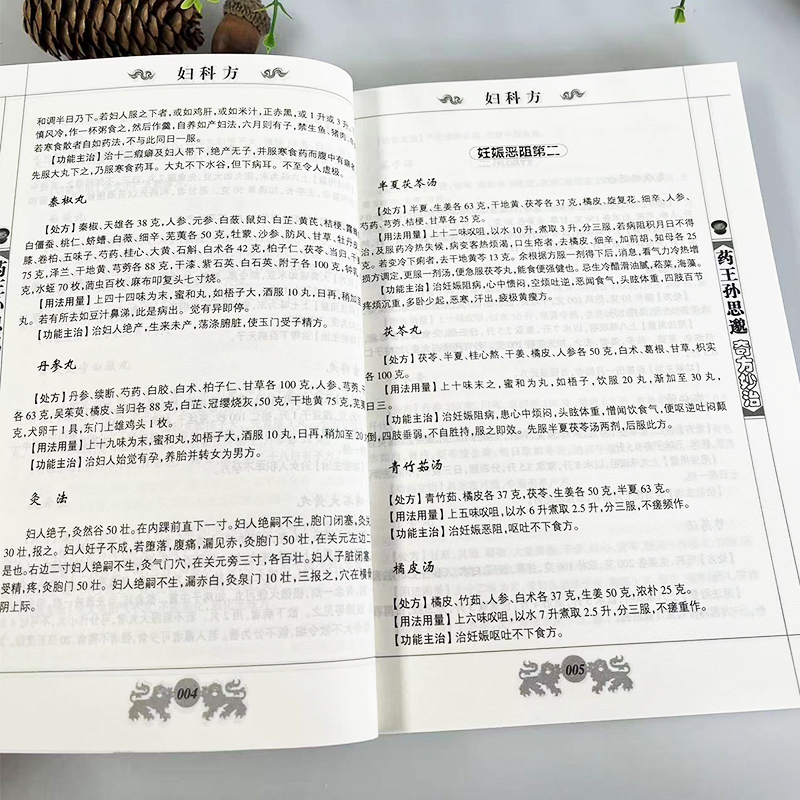 妇科方
和调半日乃下。若妇人服之下者,或如鸡肝,或如米汁,正赤黑,或1升或3升
慎风冷,作一杯粥食之,然后作羹,自养如产妇法,六月则有子,禁生鱼、猪肉、
若寒食散者自如药法,不与此同日一服。
【功能主治】治十二瘕癖及妇人带下,绝产无子,并服寒食药而腹中有癖者
先服大丸下之,乃服寒食药耳。大丸不下水谷,但下病耳。不至令人虚极。
秦椒丸
【处方】秦椒、天雄各38克,人参、元参、白蔹、鼠妇、白芷、黄芪、桔梗、露蜂
白僵蚕、桃仁、蛴螬、白薇、细辛、芜荑各50克,牡蒙、沙参、防风、甘草、牡丹皮
膝、卷柏、五味子、芍药、桂心、大黄、石斛、白术各42克,柏子仁、茯苓、当归、干
75克,泽兰、干地黄、芎䓖各88克,干漆、紫石英、白石英、附子各100克,钟乳
克,水蛭70枚,蛊虫百枚,麻布叩复头七寸烧。
【用法用量】上四十四味为末,蜜和丸,如梧子大,酒服10丸,日再,稍加至
丸。若有所去如豆汁鼻涕,此是病出。觉有异即停。
【功能主治】治妇人绝产,生来未产,荡涤腑脏,使玉门受子精方。
丹参丸
【处方】丹参、续断、芍药、白胶、白术、柏子仁、甘草各100克,人参、芎䓖、干
各63克,吴茱萸、橘皮、当归各88克,白芷、冠缨烧灰,50克,干地黄75克,芜荑
克,犬卵干1具,东门上雄鸡头1枚。
【用法用量】上十九味为末,蜜和丸,如梧子大,酒服10丸,日再,稍加至20
【功能主治】治妇人始觉有孕,养胎并转女为男方。
灸法
妇人绝子,灸然谷50壮。在内踝前直下一寸。妇人绝嗣不生,胞门闭塞,灸关
30壮,报之。妇人妊子不成,若堕落,腹痛,漏见赤,灸胞门50壮,在关元左边二
是也。右边二寸妇人绝嗣不生,灸气门穴,在关元旁三寸,各百壮。妇人子脏闭塞
受精,疼,灸胞门50壮。妇人绝嗣不生,漏赤白,灸泉门10壮,三报之,穴在横骨
阴上际。
004
妇科方
妊娠恶阻第二
半夏茯苓汤
【处方】半夏、生姜各63克,干地黄、茯苓各37克,橘皮、旋复花、细辛、人参、
芍药、芎䓖、桔梗、甘草各25克。
【用法用量】上十二味㕮咀,以水10升,煮取3升,分三服,若病阻积月日不得
治,及服药冷热失候,病变客热烦渴,口生疮者,去橘皮、细辛,加前胡、知母各25
克。若变冷下痢者,去干地黄斧13克。余根据方服一剂得下后,消息,看气力冷热增
损方调定,更服一剂汤,便急服茯苓丸,能食便强健也。忌生冷醋滑油腻,菘菜,海藻。
【功能主治】治妊娠阻病,心中愦闷,空烦吐逆,恶闻食气,头眩体重,四肢百节
疼烦沉重,多卧少起,恶寒,汗出,疲极黄瘦方。
茯苓丸
【处方】茯苓、半夏、桂心熬、干姜、橘皮、人参各50克,白术、葛根、甘草、枳实
各100克。
【用法用量】上十味末之,蜜和为丸,如梧子,饮服20丸,渐加至30丸,
日三。
【功能主治】治妊娠阻病,患心中烦闷,头眩体重,憎闻饮食气,便呕逆吐闷颠
倒,四肢垂弱,不自胜持,服之即效。先服半夏茯苓汤两剂,后服此方。
青竹茹汤
【处方】青竹茹、橘皮各37克,茯苓、生姜各50克,半夏63克。
【用法用量】上五味㕮咀,以水6升煮取2.5升,分三服,不瘥频作。
【功能主治】治妊娠恶阻,呕吐不下食方。
橘皮汤
【处方】橘皮、竹茹、人参、白术各37克,生姜50克,浓朴25克。
【用法用量】上六味㕮咀,以水7升煮取2.5升,分三服,不瘥重作。
【功能主治】治妊娠呕吐不下食方。
005
药王孙思邈奇方妙治